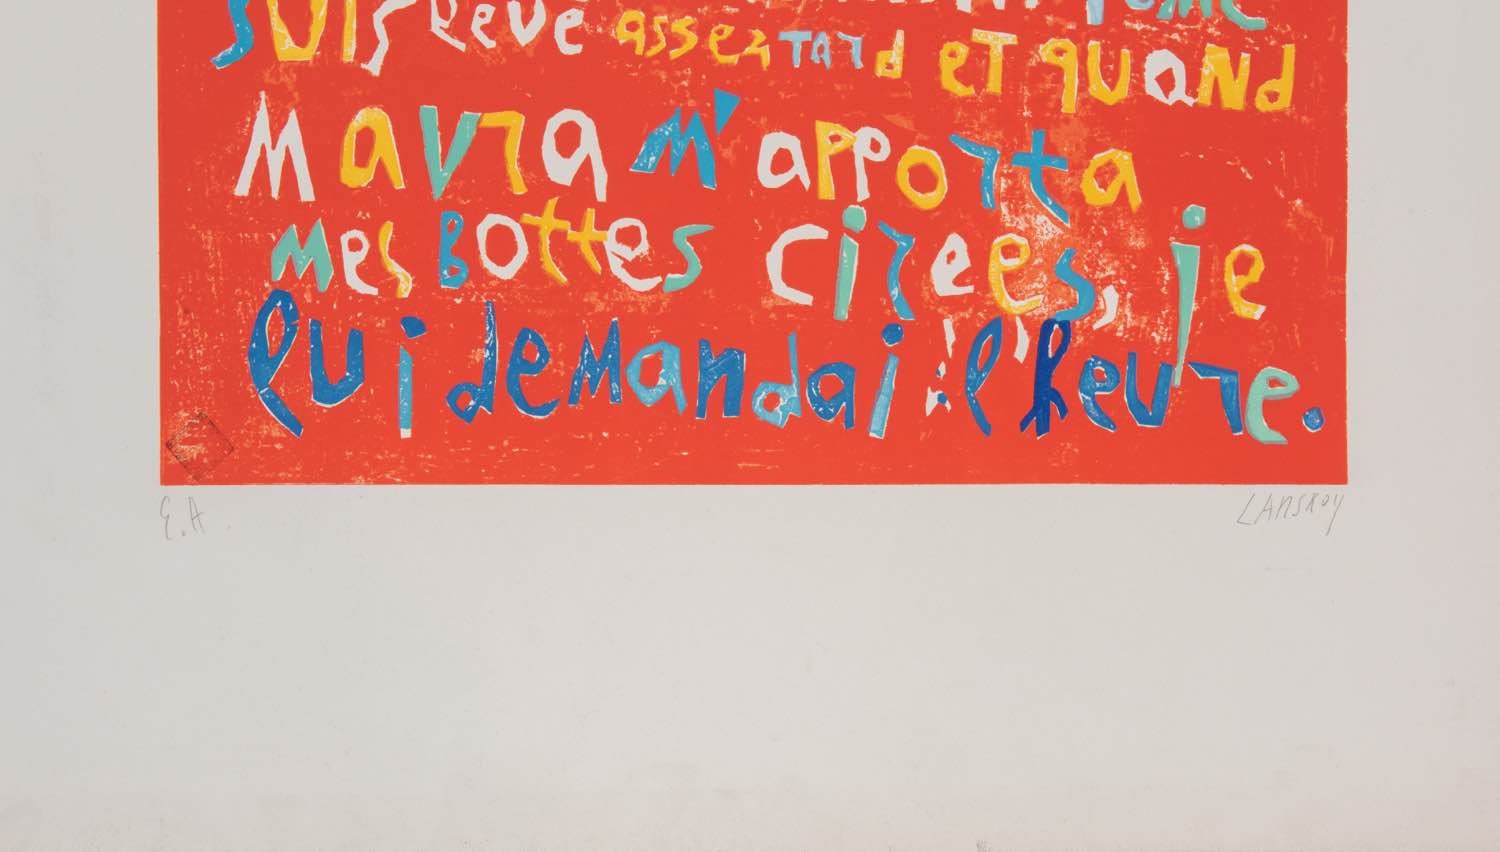 suis levé assez tard et quand
Mavra m'apporta
mes Bottes cirees, je
lui demandai l'heure.
E.A LANSKOY